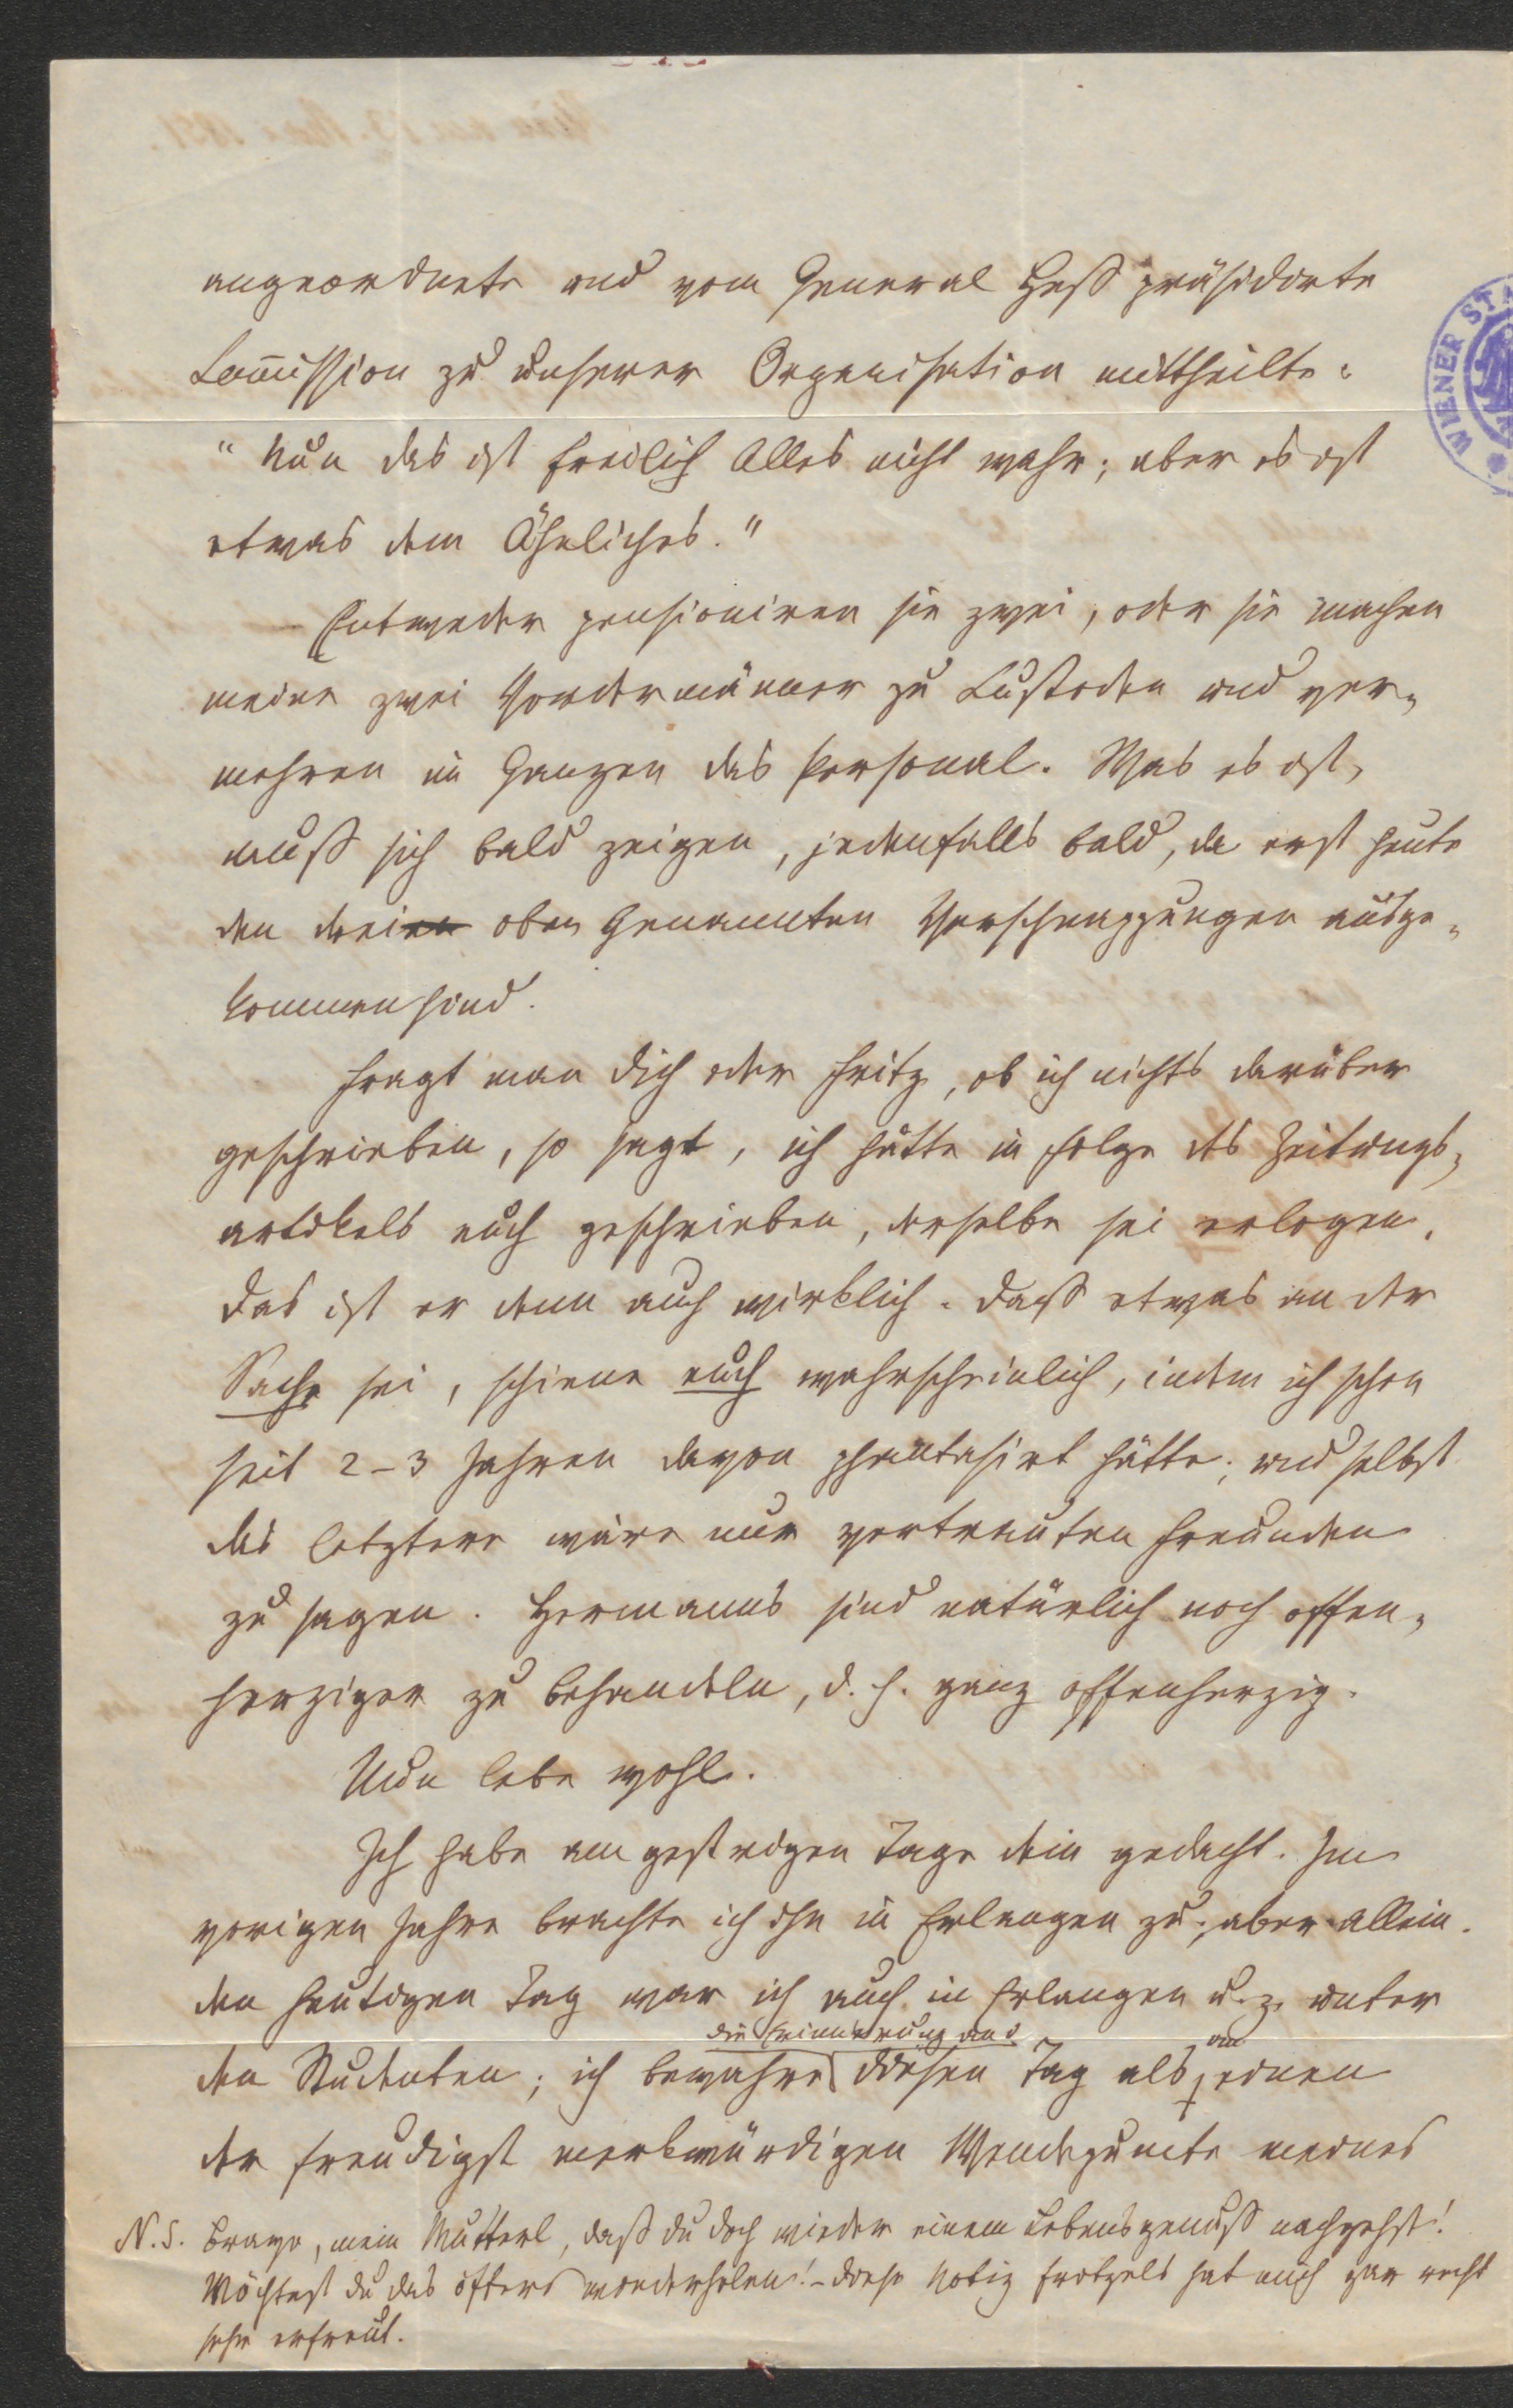 angeordnete und vom General Heß präsidirte
Com̅ission zu unserer Organisation mittheilte:
"Nun das ist freilich Alles nicht wahr; aber es ist
etwas dem Ähnliches."
Entweder pensioniren sie zwei, oder sie machen
meine zwei Vordermänner zu Custoden und ver-
mehren im Ganzen das Personal. Was es ist,
muß sich bald zeigen, jedenfalls bald, da erst heute
den dreien oben Genannten Verschnappungen ausge-
kommen sind.
Fragt man dich oder Fritz, ob ich nichts darüber
geschrieben, so sagt, ich hätte in Folge des Zeitungs-
artikels euch geschrieben, derselbe sei erlogen.
Das ist er denn auch wirklich. Daß etwas an der
Sache sei, schiene euch wahrscheinlich, indem ich schon
seit 2-3 Jahren davon phantasirt hätte; und selbst
das letztere wäre nur vertrauten Freunden
zu sagen. Hermanns sind natürlich noch offen-
herziger zu behandeln, d. h. ganz offenherzig.
Nun lebe wohl.
Ich habe am gestrigen Tage dein gedacht. Im
vorigen Jahre brachte ich ihn in Erlangen zu; aber allein.
Den heutigen Tag war ich auch in Erlangen u. z. unter
den Studenten; ich bewahre die Erinnerung an diesen Tag als an einen
der freudigst merkwürdigen Wendepuncte meines
N.S. Bravo, mein Mutterl, daß du doch wieder einem Lebensgenuß nachgehst!
Möchtest du das öfters wiederholen! - Diese Notiz hat mich gar recht
sehr erfreut.
WIENER